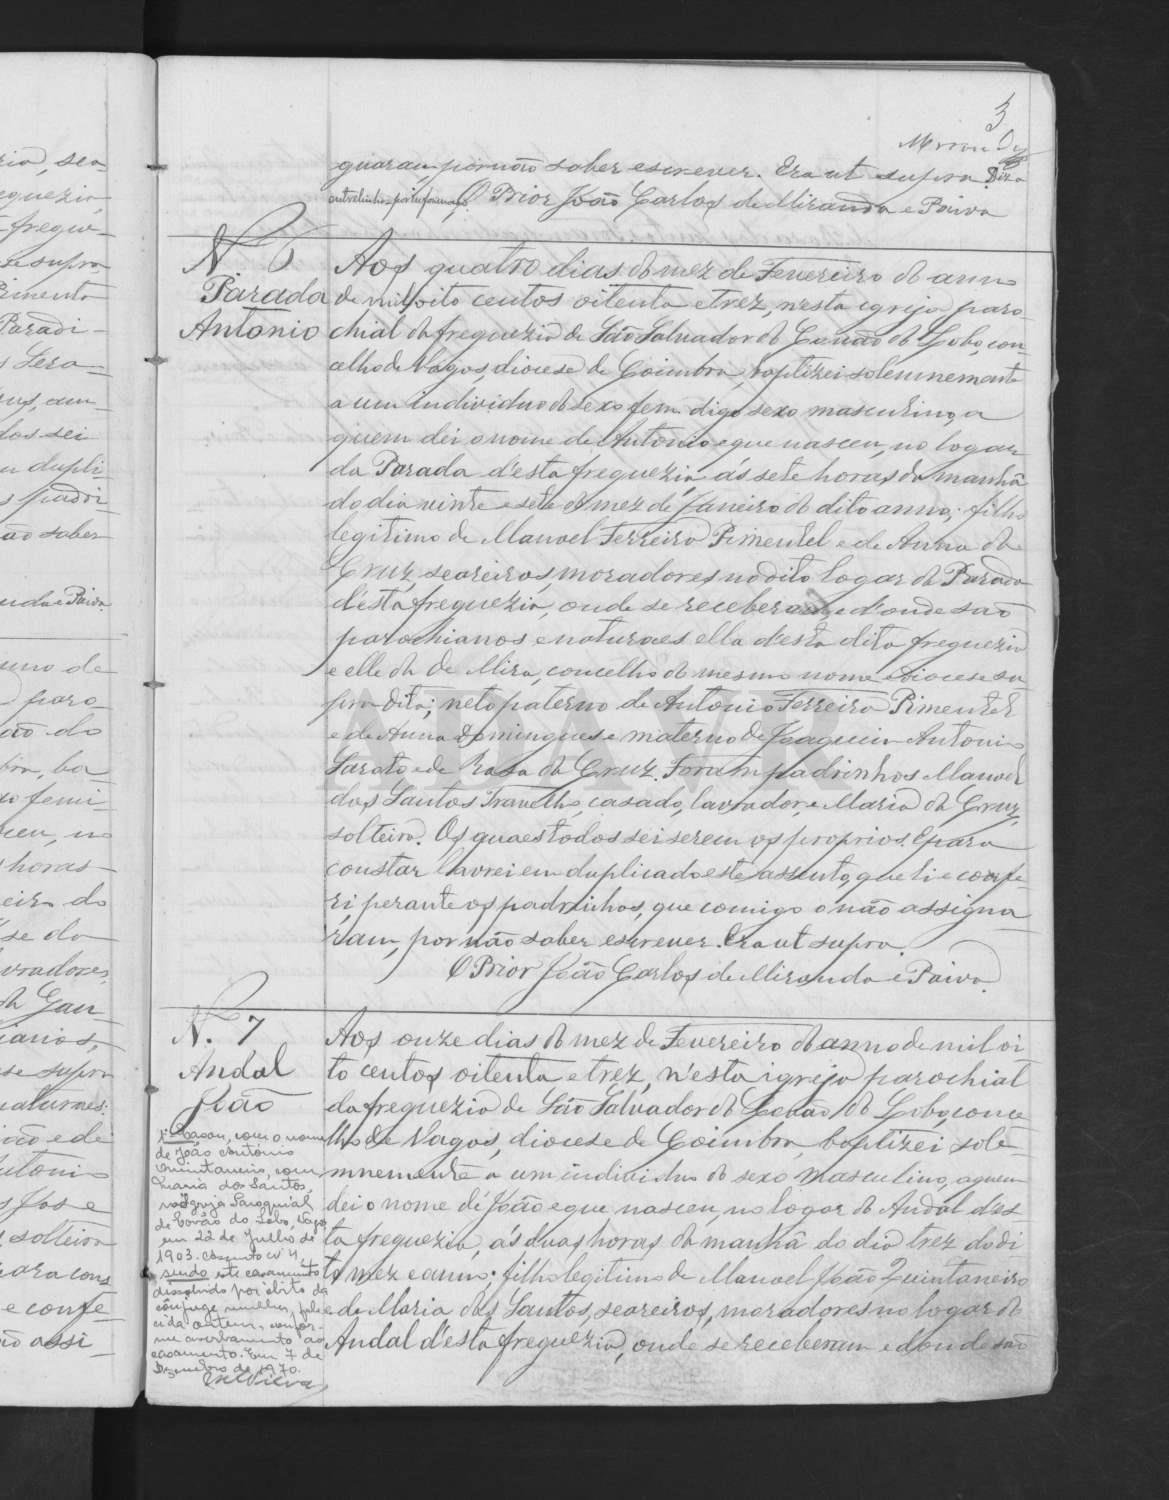 3
guaram, por não saber escrever. Era ut supra. Diz a
entrelinha - O Prior João Carlos de Miranda e Paiva
N 6
Parada
Antonio
Aos quatro dias do mez de Fevereiro do anno
de mil oito centos oitenta e trez, n'esta igreja paro-
chial da freguezia de São Salvador de Covão do Lobo, con-
celho de Vagos, diocese de Coimbra, baptizei solemnemente
a um individuo do sexo fem. digo sexo masculino, a
quem dei o nome de Antonio e que nasceu, no logar
da Parada d'esta freguezia, ás sete horas da manhã
do dia vinte e sete do mez de Janeiro do dito anno; filho
legitimo de Manoel Ferreira Pimentel e de Anna da
Cruz, seareiros, moradores no dito logar da Parada
d'esta freguezia, onde se receberam e d'onde são
parochianos e naturaes ella d'esta dita freguezia
e elle da de Mira, concelho do mesmo nome e diocese su
pra dita; neto paterno de Antonio Ferreira Pimentel
e de Anna Domingues e materno de Joaquim Antonio
Sarato e de Rosa da Cruz. Foram padrinhos Manoel
dos Santos Travelho, casado, lavrador, e Maria da Cruz,
solteira. Os quaes todos sei serem os proprios. E para
constar lavrei em duplicado este assento, que li e confe-
ri, perante os padrinhos, que comigo o não assigna
ram, por não saber escrever. Era ut supra.
O Prior João Carlos de Miranda e Paiva.
N. 7
Andal
João
Aos onze dias do mez de Fevereiro do anno de mil oi
to centos oitenta e trez, n'esta igreja parochial
da freguezia de São Salvador de Covão do Lobo, conce
lho de Vagos, diocese de Coimbra, baptizei sole-
mnemente a um individuo do sexo masculino, a quem
dei o nome de João e que nasceu, no logar do Andal d'es-
ta freguezia, ás duas horas da manhã do dia trez do di
to mez e anno; filho legitimo de Manoel João Quintaneiro
e de Maria dos Santos, seareiros, moradores no logar do
Andal d'esta freguezia, onde se receberam e donde são
1º Casou, com o nome
de João António
Quintaneiro, com
Maria dos Santos,
na Igreja Paroquial
de Covão do Lobo, Vagos
em 22 de Julho de
1903. Assento nº 4,
sendo este casamento
dissolvido por óbito da
cônjuge mulher, fale
cida ontem, confor-
me averbamento ao
casamento. Em 7 de
Dezembro de 1970.
ADAVR